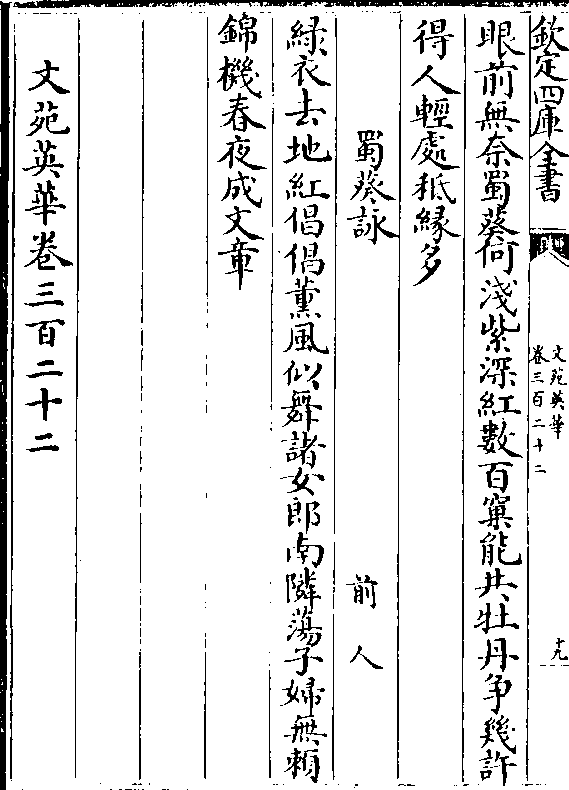 欽定四庫全書
文苑英華
卷三百二十二
十九
眼前無奈蜀葵何淺紫深紅數百窠能共牡丹争幾許
得人輕處秪緣多
蜀葵詠
前人
綠衣去地紅倡倡薰風似舞諸女郎南隣蕩子婦無賴
錦機春夜成文章
文苑英華卷三百二十二